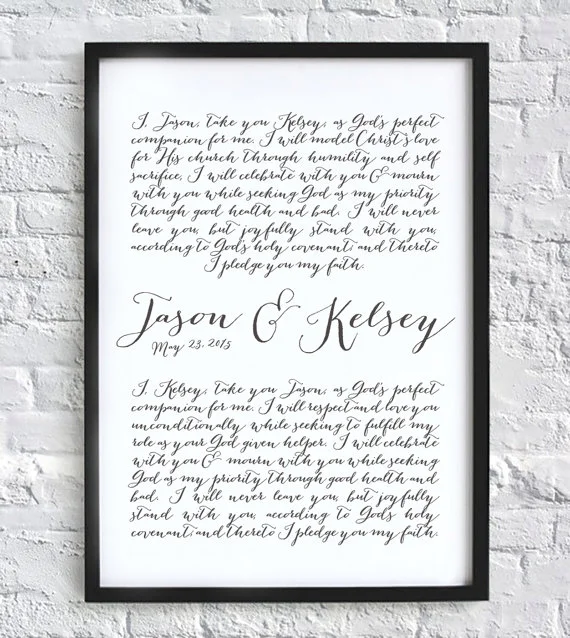 I, Jason, take you Kelsey, as God's perfect
companion for me. I will model Christ's love
for His church through humility and self
sacrifice. I will celebrate with you & mourn
with you while seeking God as my priority
through good health and bad. I will never
leave you, but joyfully stand with you,
according to God's holy covenant; and thereto
I pledge you my faith.
Jason & Kelsey
May 23, 2015
I, Kelsey, take you Jason, as God's perfect
companion for me. I will respect and love you
unconditionally while seeking to fulfill my
role as your God given helper. I will celebrate
with you & mourn with you while seeking
God as my priority through good health and
bad. I will never leave you, but joyfully
stand with you, according to God's holy
covenant; and thereto I pledge you my faith.